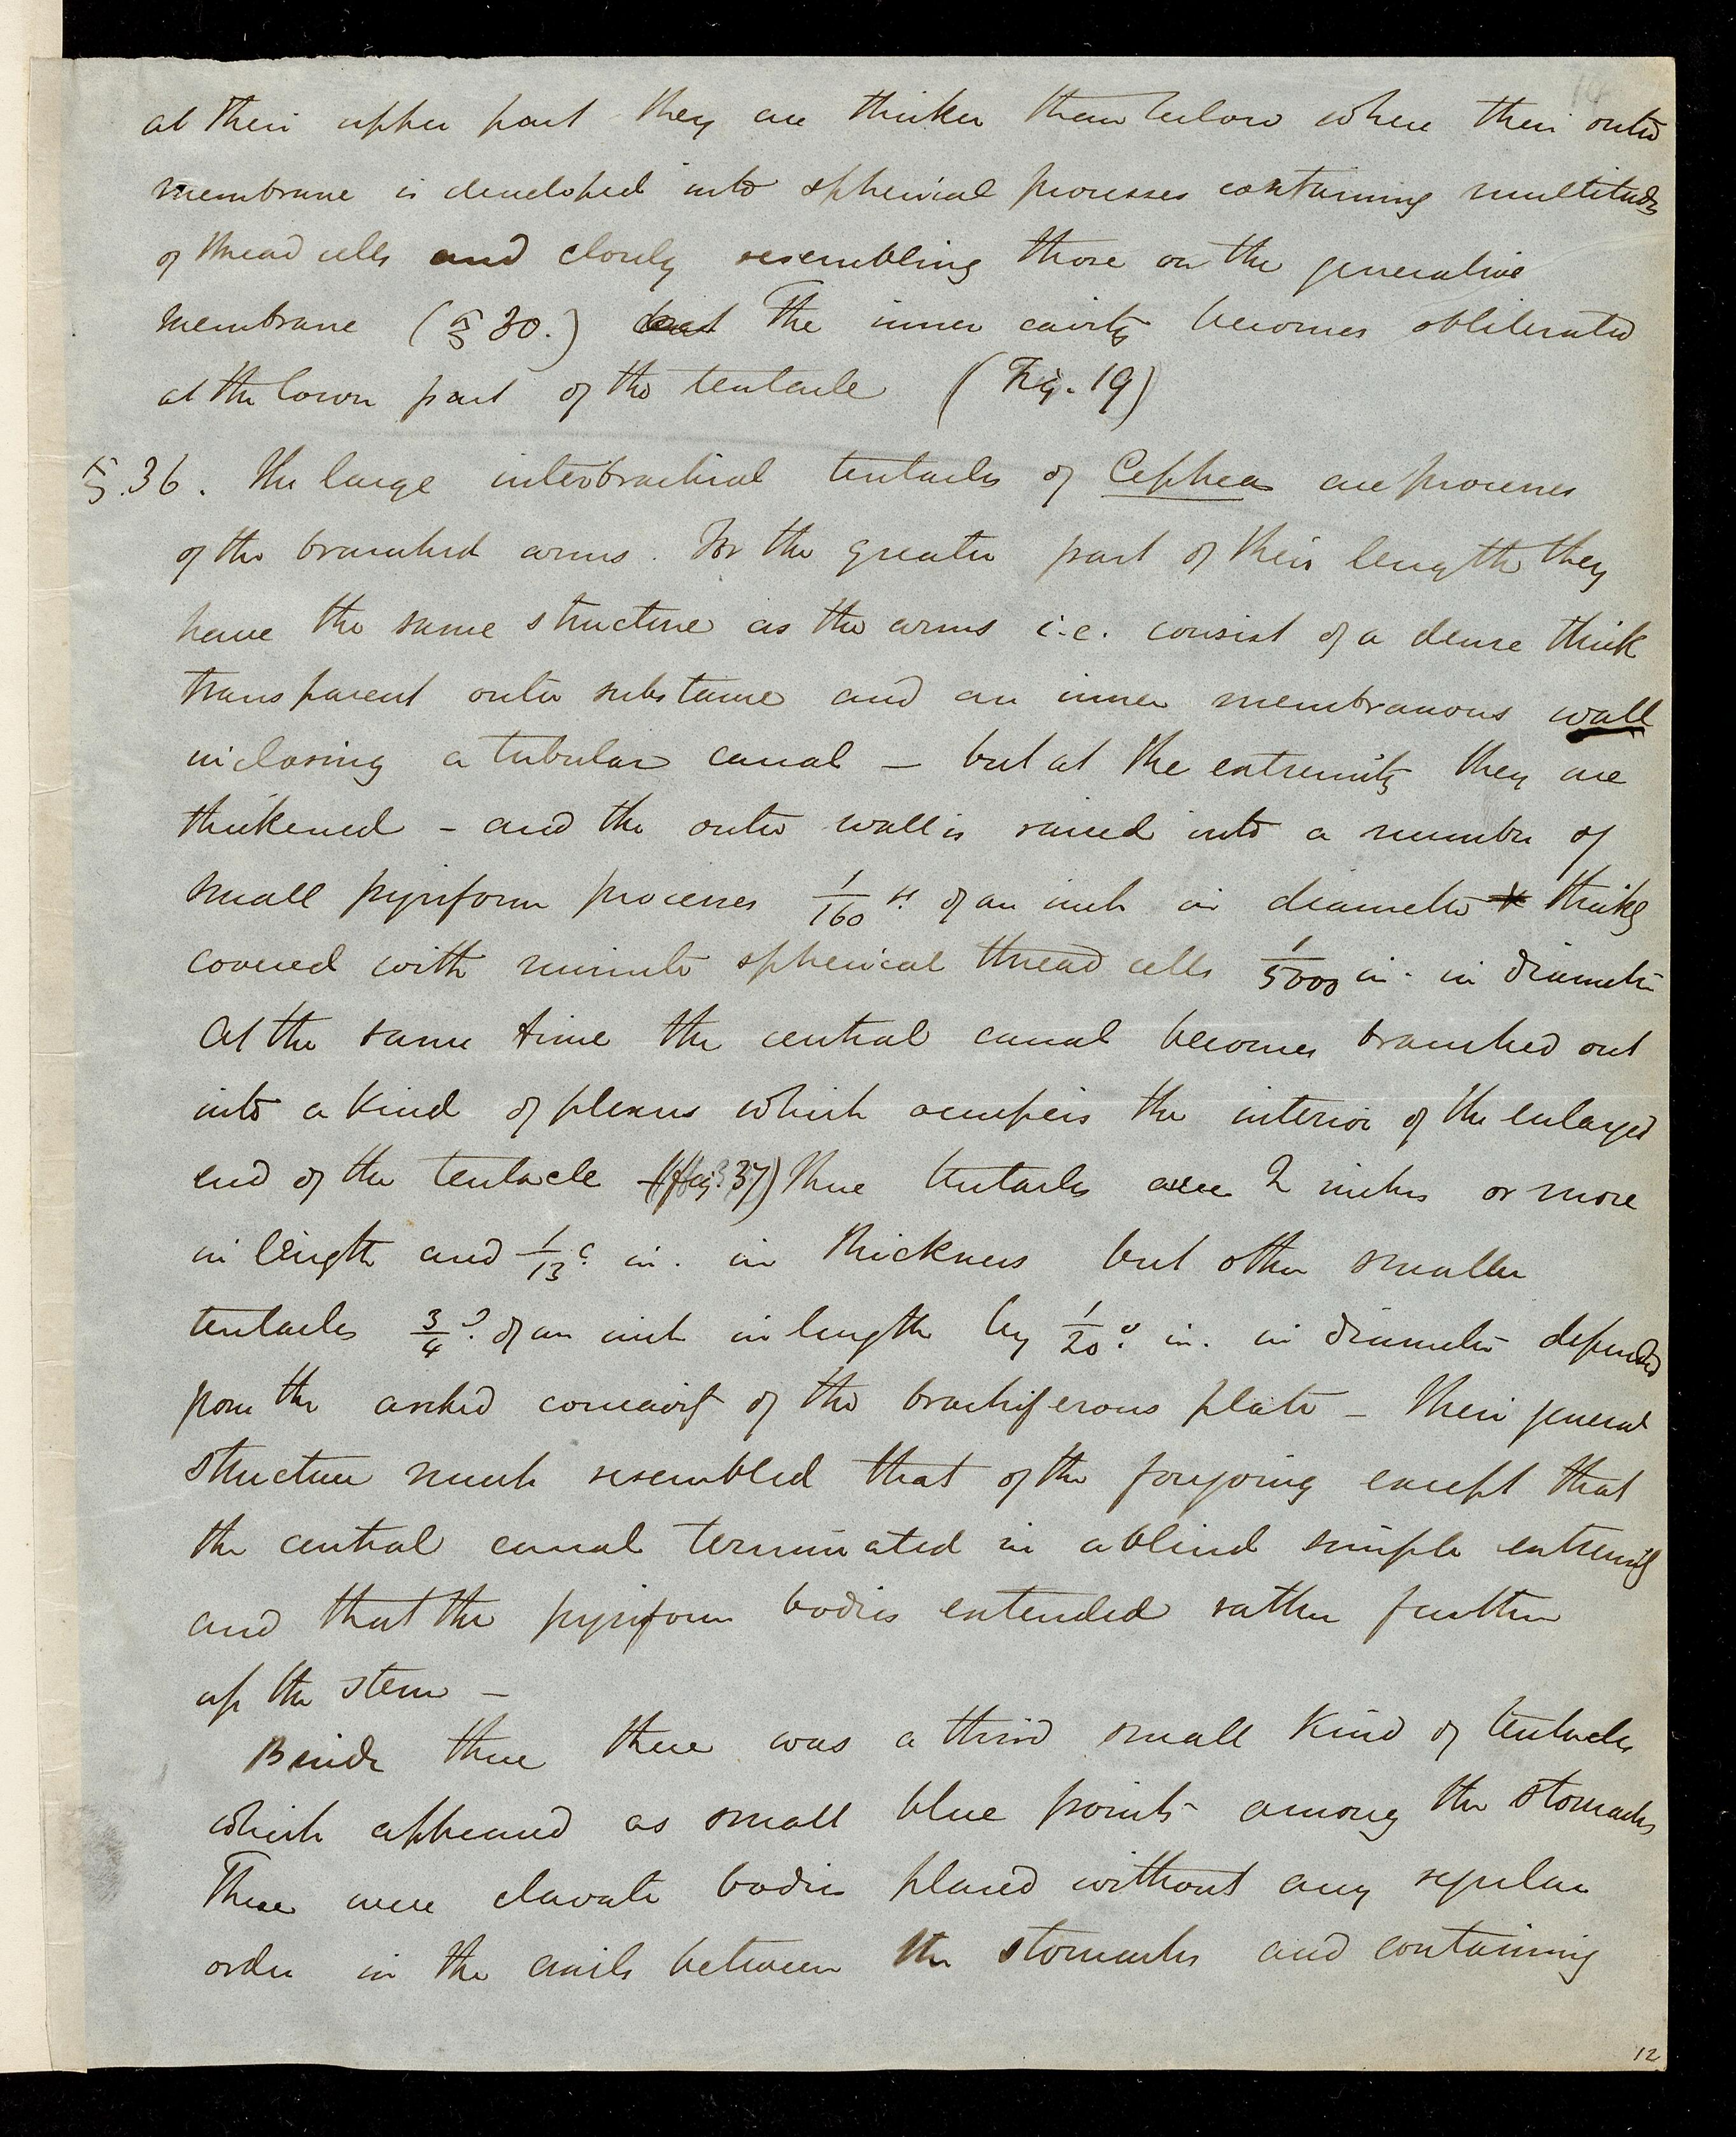 at their upper part they are thicker than below where their outer
membrane is developed into spherical processes containing multitudes
of thread cells and closely resembling those on the generative
membrane (§ 30.) but The inner cavity becomes obliterated
at the lower part of the tentacle (Fig. 19)
§.36. The large interbrachial tentacles of Cephea are processes
of the branched arms. For the greater part of their length they
have the same structure as the arms i.e. consist of a dense thick
transparent outer substance and an inner membranous wall
inclosing a tubular canal – but at the extremity they are
thickened – and the outer wall is raised into a number of
small pyriform processes 1/160 th of an inch in diameter thickly
covered with minute spherical thread cells 1/5000 in. in diameter
At the same time the central canal becomes branched out
into a kind of plexus which occupies the interior of the enlarged
end of the tentacle (fig. 37) These tentacles were 2 inches or more
in length and 1/13 in. in thickness but other smaller
tentacles 3/4 of an inch in length by 1/20 in. in diameter depended
from the arched concavity of the brachiferous plate – Their general
structure much resembled that of the foregoing except that
the central canal terminated in a blind simple extremity
and that the pyriform bodies extended rather further
up the stem –
Beside these there was a third small kind of tentacles
which appeared as small blue points among the stomachs
These were clavate bodies placed without any regular
order in the between the stomachs and containing
12